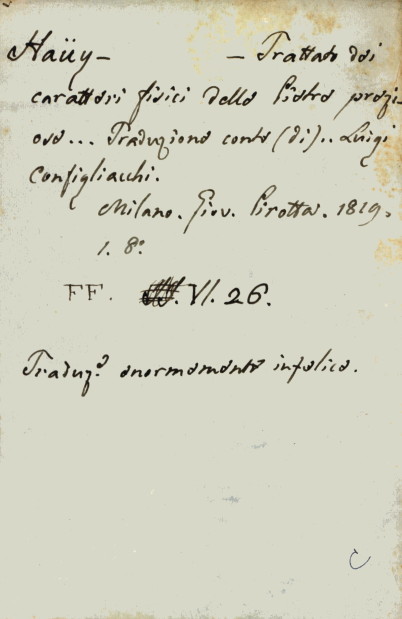 Haüy — — Trattato dei
caratteri fisici delle Pietre prezi-
ose... Traduzione conte (di).. Luigi
Configliacchi.
Milano. Giov. Pirotta. 1819.
1. 8.°
FF. VI. 26.
Traduz.e enormemente infelice.
C